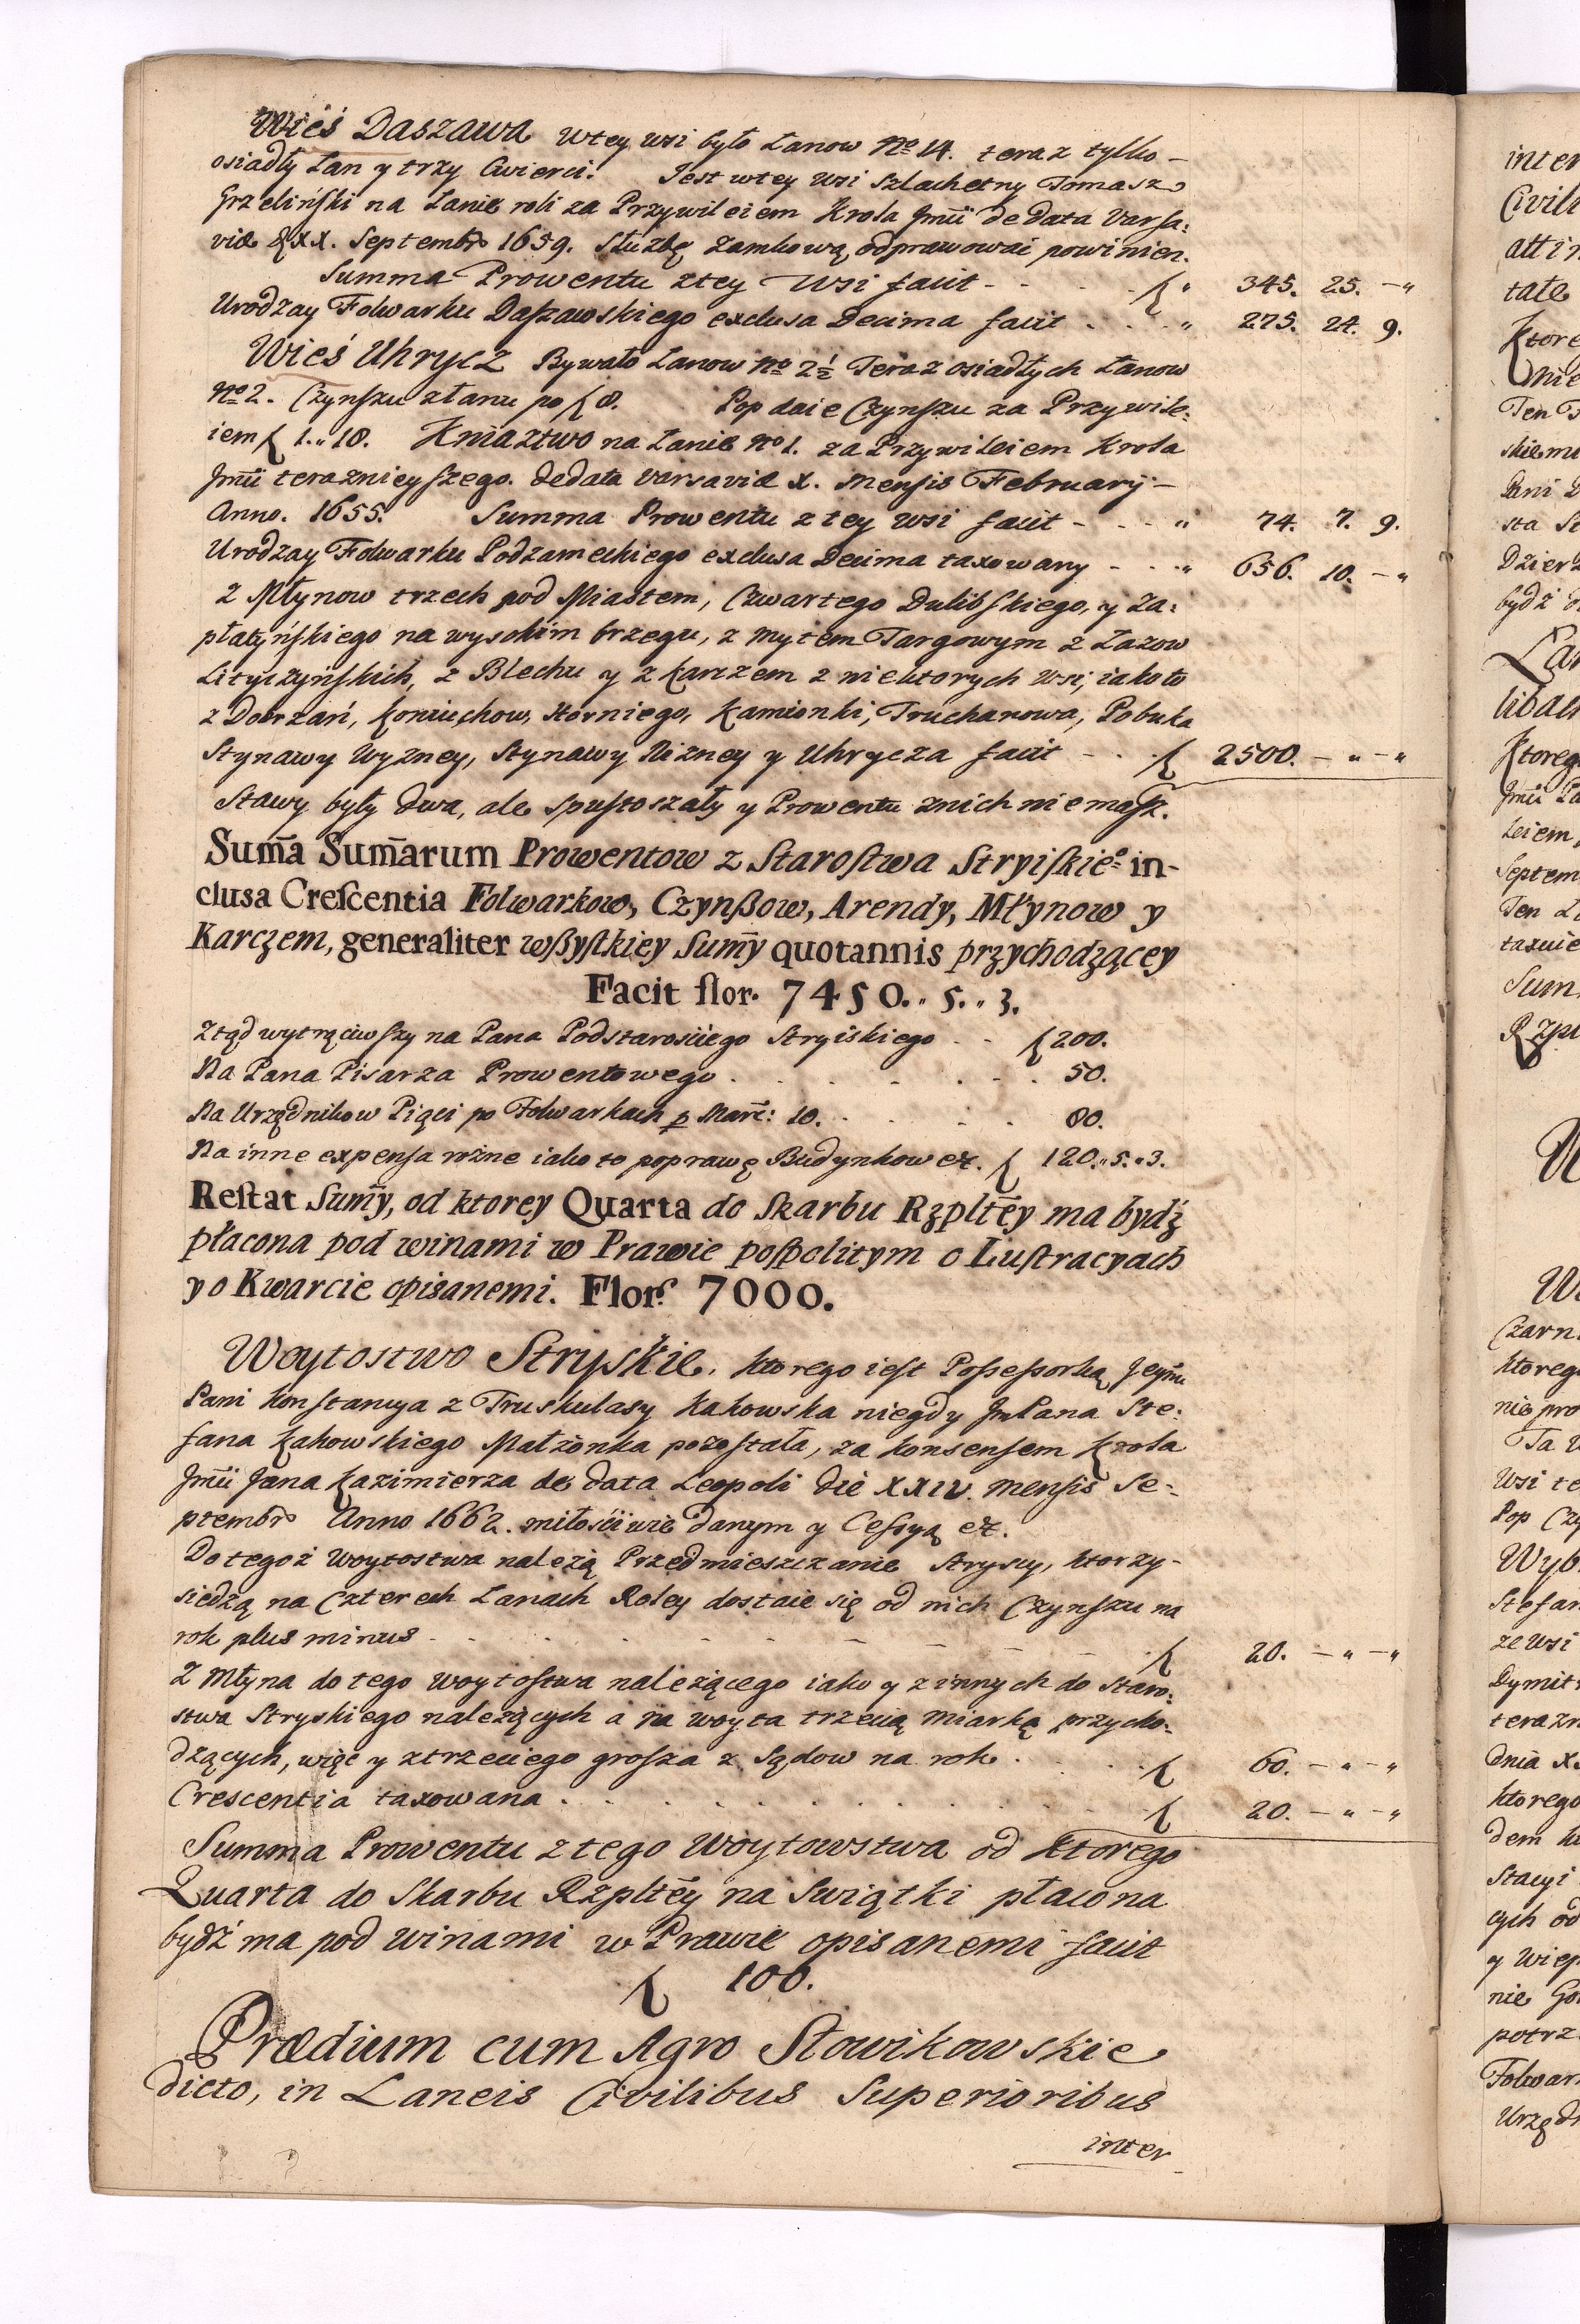 Wieś Daszawa wtey wsi było Łanow No 14. teraz tylko -
osiadły Łan y trzy Cwierci. Jest wtey wsi Szlachetny Tomasz
Grzeliński na Łanie roli za Przywileiem Krola Jmči de data Varsa:
viæ XX. Septembr 1659. Służbę Zamkową odprawować powinien.
Summa Prowentu ztey Wsi facit - - - - ƒ " 345. 25. - "
Urodzay Folwarku Daszawskiego exclusa Decima facit . . . " 275. 24. 9.
Wieś Uhrycz Bywało Łanow No 2½ Teraz osiadłych Łanow
No 2. Czynszu złanu po ƒ 8. Pop daie Czynszu za Przywile:
iem ƒ 1.. 18. Kniaztwo na Łanie No 1. za Przywileiem Krola
Jmči teraznieyszego. de data Varsaviæ X. Mensis February -
Anno. 1655. Summa Prowentu z tey wsi facit - - - " 74. 7. 9.
Urodzay Folwarku Podzameckiego exclusa Decima taxowany - - - " 656. 10. - "
z Młynow trzech pod Miastem, Czwartego Dulibskiego, y Za:
płatyńskiego na wysokim brzegu, z Mytem Targowym z Łazow
Lityczyńskich, z Blechu y z karczem z niektorych wsi, iako to
z Dobrzań, Koniuchow, Storniego, Kamionki, Truchanowa, Pobuka
Stynawy Wyzney, Stynawy Nizney y Uhrycza facit - - . ƒ 2500. - " - "
Stawy były dwa, ale spustoszały y Prowentu znich niemasz.
Sum̃a Sum̃arum Prowentow z Starostwa Stryiskieo in-
clusa Crescentia Folwarkow, Czynßow, Arendy, Młynow y
Karczem, generaliter wßystkiey Sum̃y quotannis przychodzącey
Facit flor. 7450.. 5.. 3.
Ztąd wytrąciwszy na Pana Podstarosciego Stryiskiego . . ƒ 200.
Na Pana Pisarza Prowentowego . . . . . . . 50.
Na Urzędnikow Pięci po Folwarkach p Marc: 10. . . . . . 80.
Na inne expensa rożne iako to poprawę Budynkow etc. ƒ 120.. 5.. 3.
Restat Sum̃y, od ktorey Quarta do Skarbu Rzpltey ma bydź
płacona pod winami w Prawie pospolitym o Lustracyach
y o Kwarcie opisanemi. Flor. 7000.
Woytostwo Stryskie, ktorego iest Possessorką Jeymči
Pani Konstancya z Truskulasy Kakowska niegdy JmPana Ste:
fana Kakowskiego Małżonka pozostała, za konsensem Krola
Jmči Jana Kazimierza de data Leopoli die XXIV. Mensis Se-
ptembr Anno 1662. miłościwie danym y Cessyą etc.
Do tegoż Woytostwa należą Przedmieszczanie Stryscy, ktorzy -
siedzą na Czterech Łanach Roley dostaie się od nich Czynszu na
rok plus minus - . . - - - - - . ƒ 20. - " - "
Z Młyna do tego Woytostwa należącego iako y z innych do Staro:
stwa Stryskiego należących a na Woyta trzecią Miarką przycho:
dzących, więc y ztrzeciego grosza z Sądow na rok . . . . ƒ 60. - " - "
Crescentia taxowana . . . . . . . . . . ƒ 20. - " - "
Summa Prowentu z tego Woytowstwa od ktorego
Quarta do Skarbu Rzpltey na Swiątki płacona
bydź ma pod winami w Prawie opisanemi facit
ƒ 100.
Prædium cum Agro Słowikowskie
dicto, in Laneis Civilibus Superioribus
inter